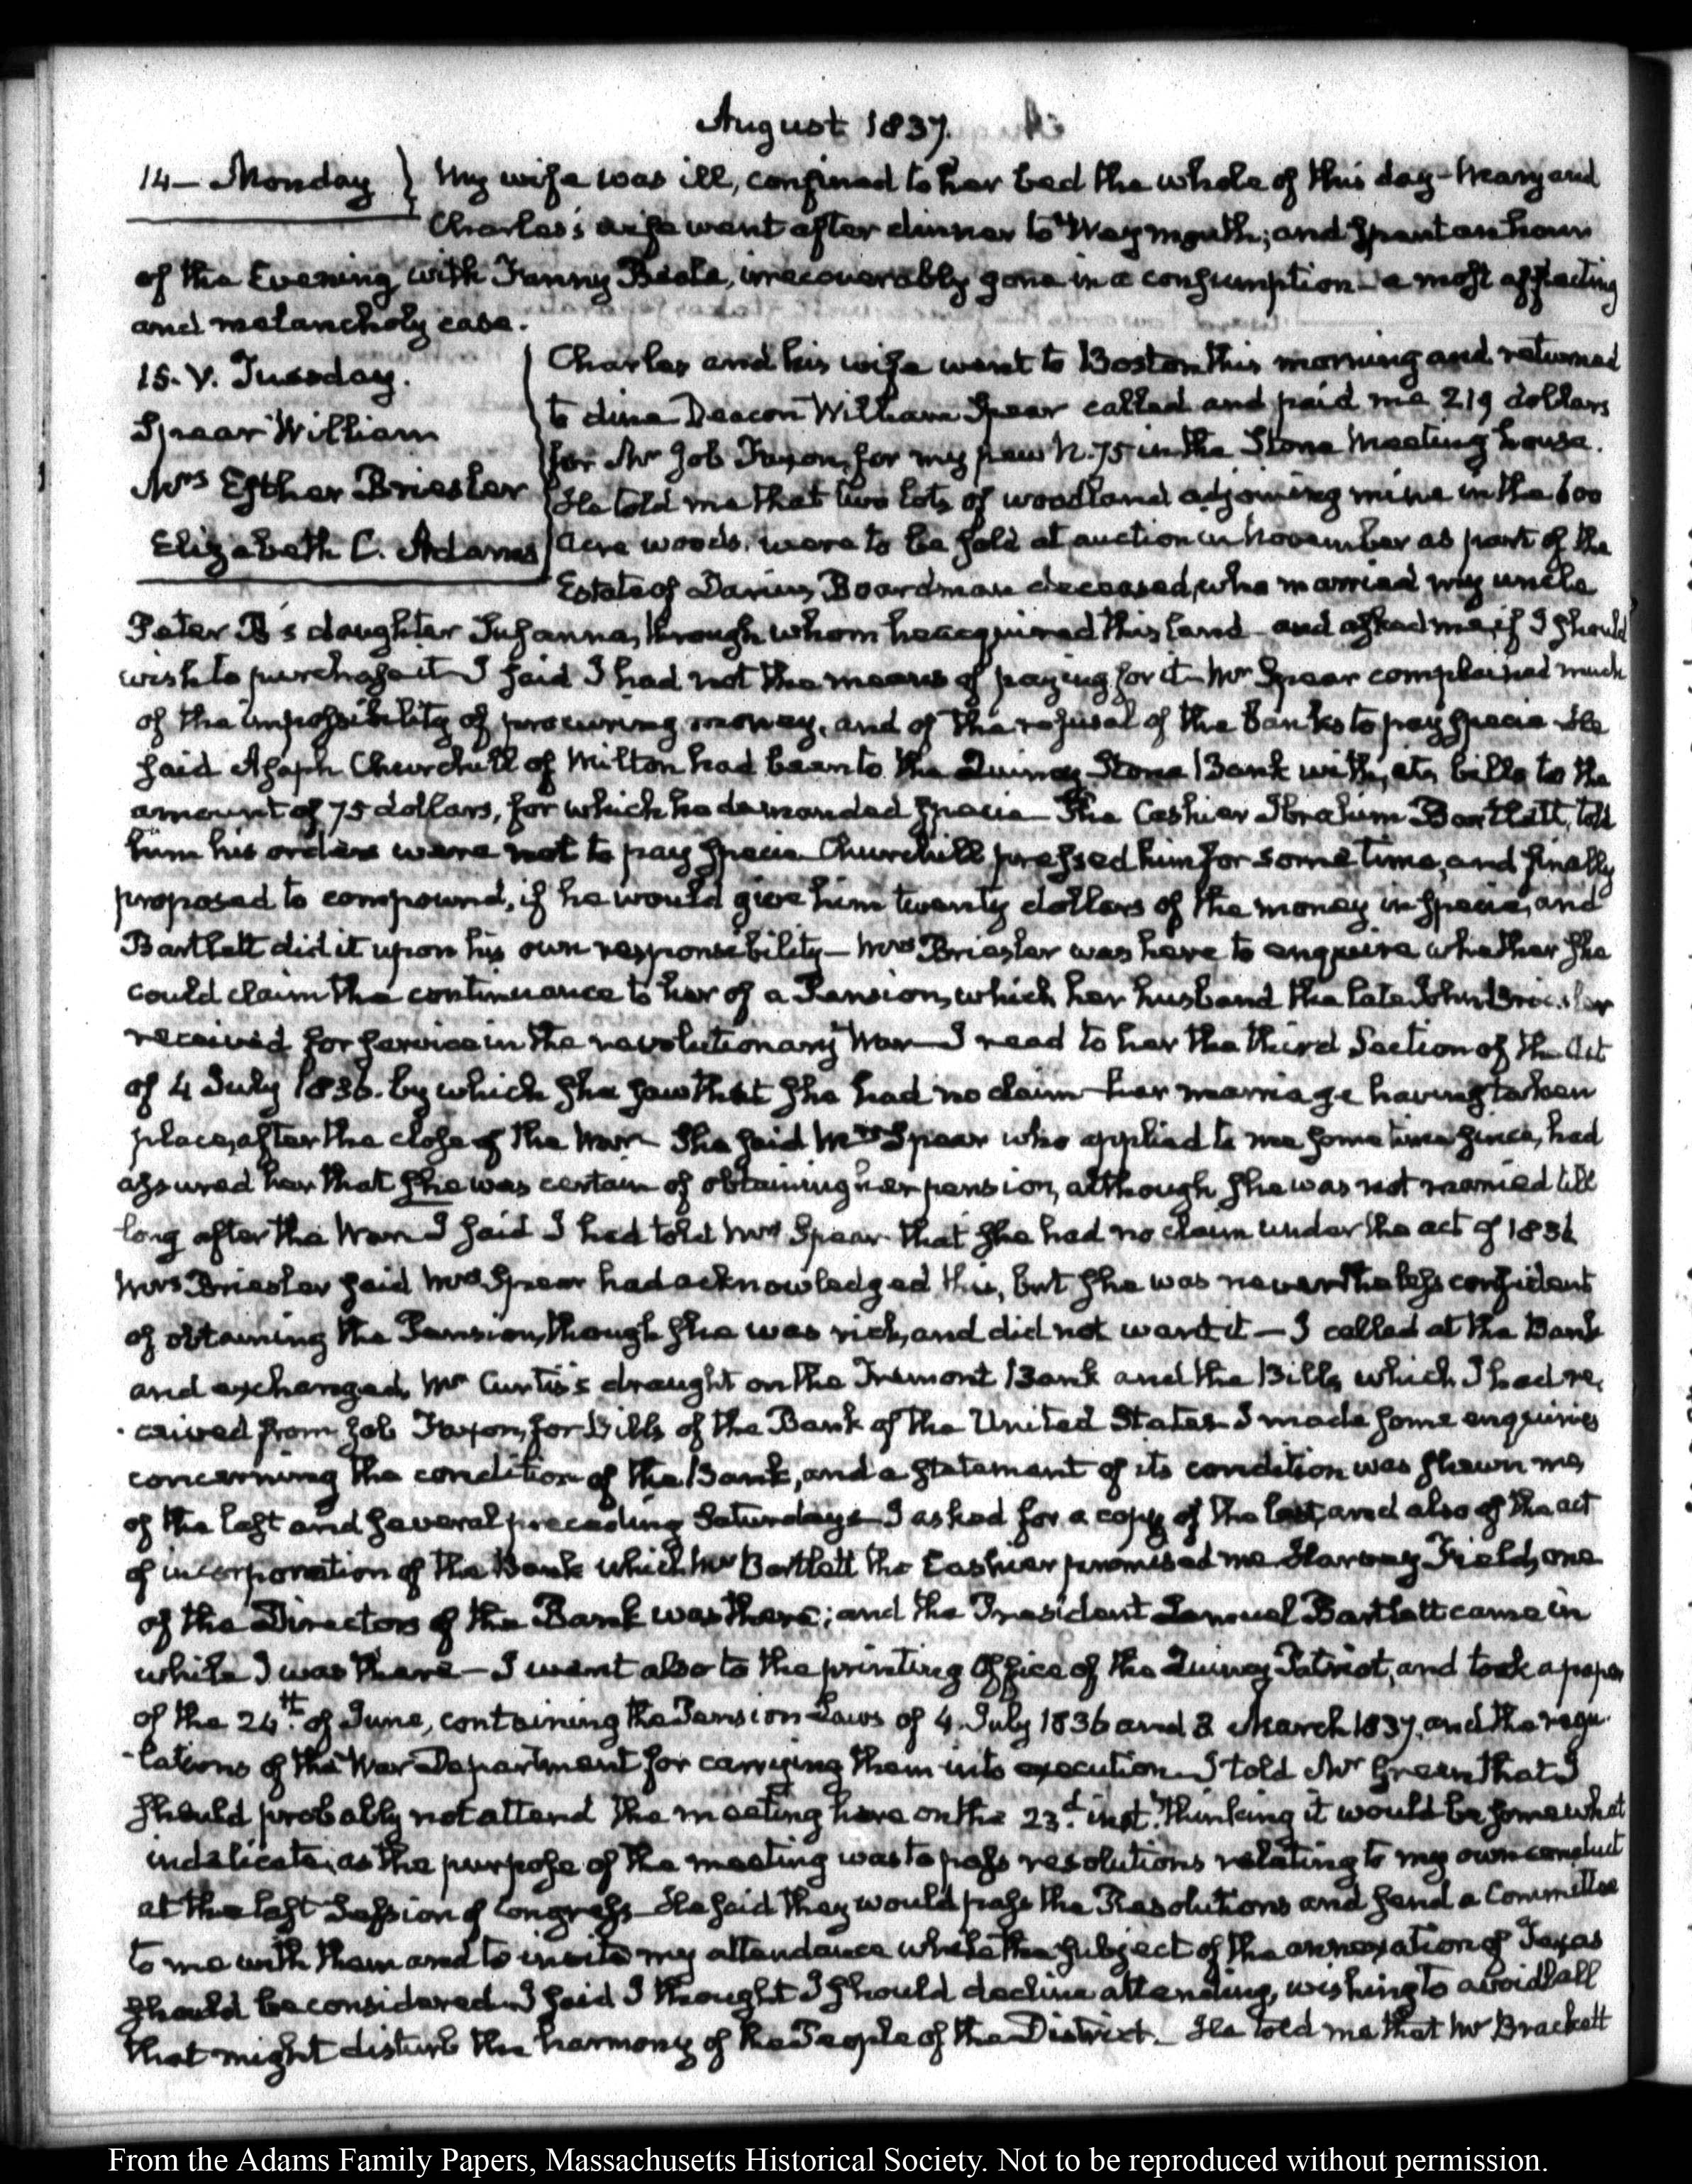 August 1837.
14 — Monday } My wife was ill, confined to her bed the whole of this day — Mary and
Charles's wife went after dinner to Weymouth; and spent an hour
of the Evening with Fanny Beale, irrecoverably gone in a consumption — a most affecting
and melancholy case.
15. V. Tuesday.
Spear William
Mrs Esther Briesler
Elizabeth C. Adams
Charles and his wife went to Boston this morning and returned
to dine Deacon William Spear called and paid me 219 dollars
for Mr Job Faxon, for my pew N. 75 in the Stone Meeting house.
He told me that two lots of woodland adjoining mine in the 600
Acre woods, were to be sold at auction in November as part of the
Estate of Darius Boardman deceased, who married my uncle
Peter B's daughter Susanna, through whom he acquired this land — and asked me, if I should
wish to purchase it — I said I had not the means of paying for it — Mr Spear complained much
of the impossibility of procuring money, and of the refusal of the banks to pay specie — He
said Asaph Churchill of Milton had been to the Quincy Stone Bank with, its bills to the
amount of 75 dollars, for which he demanded specie — The Cashier Ibrahim Bartlett, told
him his orders were not to pay specie Churchill pressed him for some time, and finally
proposed to compound, if he would give him twenty dollars of the money in specie, and
Bartlett did it upon his own responsebility — Mrs Briesler was here to enquire whether she
could claim the continuance to her of a Pension, which her husband the late John Briesler
received for service in the revolutionary War — I read to her the third Section of the Act
of 4 July 1836. by which she saw that she had no claim — her marriage having taken
place, after the close of the War — She said Mrs Spear who applied to me some time since, had
assured her that she was certain of obtaining her pension, although she was not married till
long after the War — I said I had told Mrs Spear that she had no claim under the act of 1836
Mrs Briesler said Mrs Spear had acknowledged this, but she was nevertheless confident
of obtaining the Pension, though she was rich, and did not want it — I called at the Bank
and exchanged, Mr Curtis's draught on the Tremont Bank and the Bills which I had re,
ceived from Job Faxon, for Bills of the Bank of the United States — I made some enquiries
concerning the condition of the Bank, and a statement of its condition was shewn me,
of the last and several preceding Saturdays — I asked for a copy of the last, and also of the act
of incorporation of the Bank which Mr Bartlett the Cashier promised me Harvey Field, one
of the Directors of the Bank was there; and the President Lemuel Bartlett came in
while I was there — I went also to the printing Office of the Quincy Patriot, and took a paper
of the 24th of June, containing the Pension Laws of 4. July 1836 and 3 March 1837, and the regu-
-lations of the War Department for carrying them into execution — I told Mr Green that I
should probably not attend the meeting here on the 23d inst. thinking it would be somewhat
indelicate; as the purpose of the meeting was to pass resolutions relating to my own conduct
at the last Session of Congress — He said they would pass the Resolutions and send a Committee
to me with them and to invite my attendance while the subject of the annexation of Texas
should be considered — I said I thought I should decline attending, wishing to avoid all
that might disturb the harmony of the People of the District. — He told me that Mr Brackett
From the Adams Family Papers, Massachusetts Historical Society. Not to be reproduced without permission.